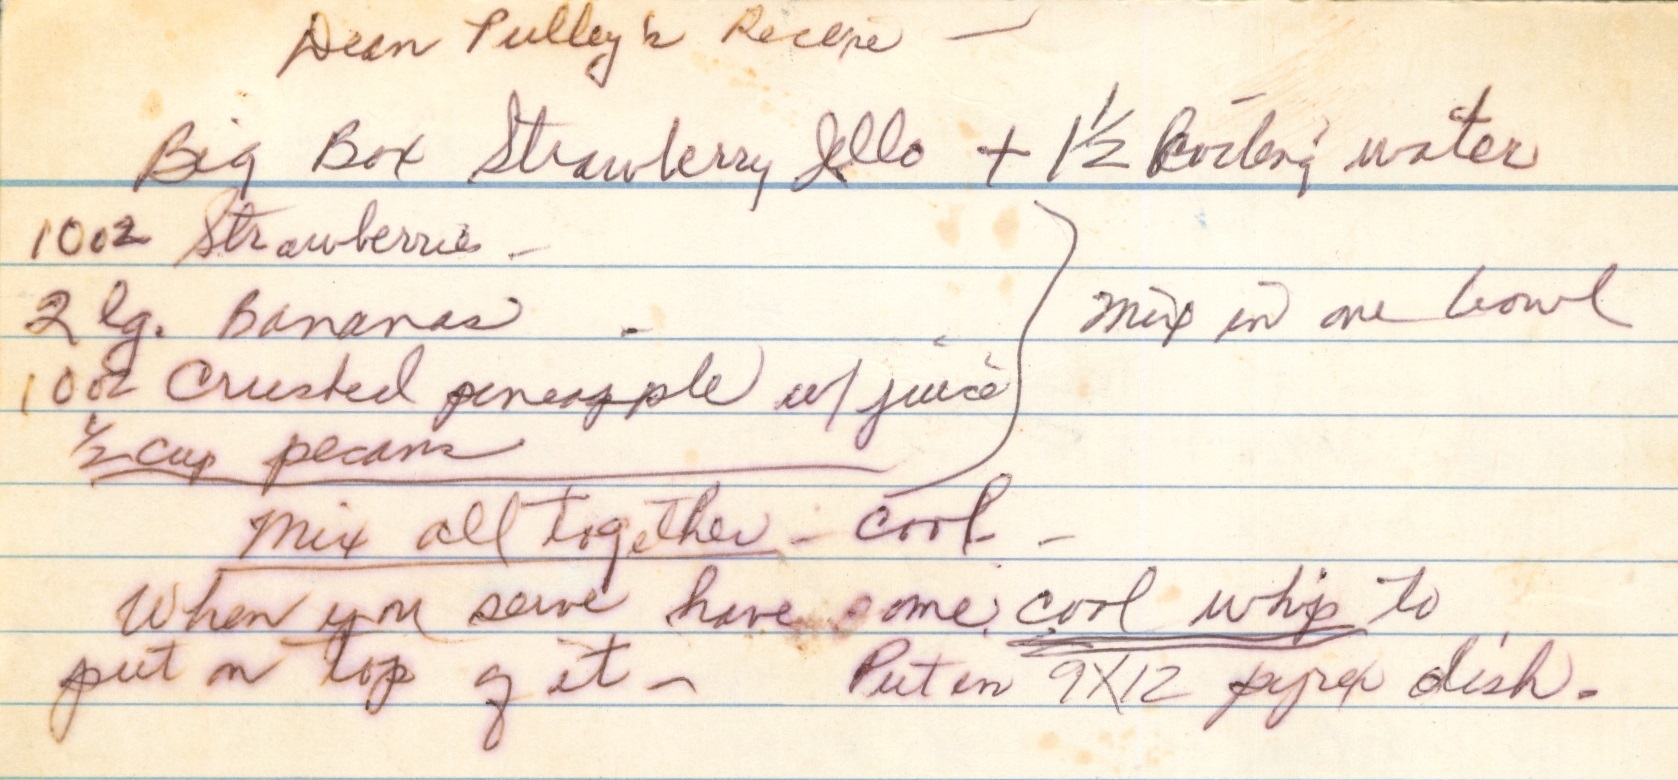 Dean Pulley's Recipe —
Big Box Strawberry Jello + 1 1/2 Boiling water
10oz Strawberries -
2 lg. Bananas -
10oz Crushed pineapple w/ juice
1/2 cup pecans
Mix in one bowl
Mix all together - cool -
When you serve have some cool whip to
put on top of it - Put in 9X12 pyrex dish.